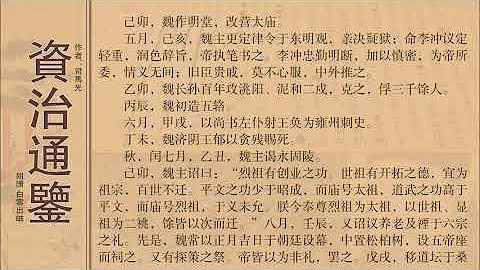 資治通鑒
作者：司馬光
朗讀：白雲出岫
己卯，魏作明堂，改营太庙。
五月，己亥，魏主更定律令于东明观，亲决疑狱；命李冲议定
轻重，润色辞旨，帝执笔书之。李冲忠勤明断，加以慎密，为帝所
委，情义无间；旧臣贵戚，莫不心服，中外推之。
乙卯，魏长孙百年攻洮阳、泥和二戍，克之，俘三千余人。
丙辰，魏初造五辂。
六月，甲戌，以尚书左仆射王奂为雍州刺史。
丁未，魏济阴王郁以贪残赐死。
秋，闰七月，乙丑，魏主谒永固陵。
己卯，魏主诏曰：“烈祖有创业之功，世祖有开拓之德，宜为
祖宗，百世不迁。平文之功少于昭成，而庙号太祖，道武之功高于
平文，而庙号烈祖，于义未允。朕今奉尊烈祖为太祖，以世祖、显
祖为二祧，馀皆以次而迁。”八月，壬辰，又诏议养老及禋于六宗
之礼。先是，魏常以正月吉日于朝廷设幕，中置松柏树，设五帝座
而祠之。又有探策之祭。帝皆以为非礼，罢之。戊戌，移道坛于桑